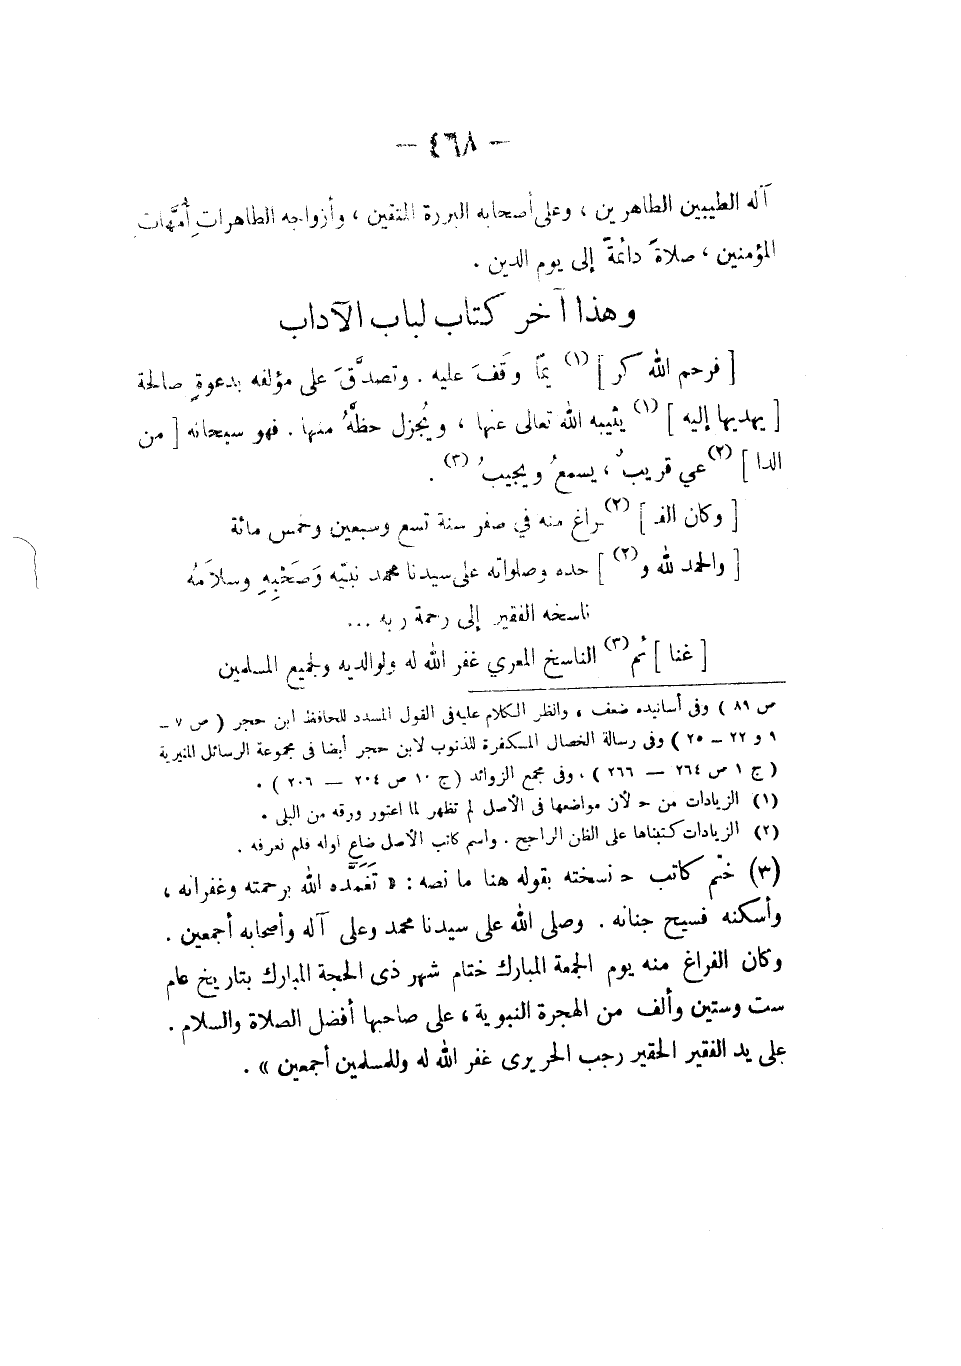 — ٤٦٨ —
آله الطيبين الطاهرين ، وعلى أصحابه البررة المتقين ، وأزواجه الطاهراتِ أُمَّهات
المؤمنين ، صلاةً دائمةً إلى يوم الدين .
وهذا آخر كتاب لباب الآداب
[ فرحم الله كر ] (١) يمًا وقَفَ عليه . وتصدَّقَ على مؤلفه بدعوةٍ صالحة
[ يهديها إليه ] (١) يثيبه الله تعالى عنها ، ويُجزل حظَّهُ منها . فهو سبحانه [ من
الدا ] (٢) عي قريبٌ ، يسمعُ ويجيبُ (٣) .
[ وكان الفـ ] (٢) ـراغ منه في صفر سنة تسع وسبعين وخمس مائة
[ والحمد لله و (٢) ] حده وصلواته على سيدنا محمد نبيّه وَصَحْبِهِ وسلاَمُه
ناسخه الفقير إلى رحمة ربه ...
[ غنا ] ثم (٣) الناسخ المعري غفر الله له ولوالديه ولجميع المسلمين
ص ٨٩ ) وفى أسانيده ضعف ، وانظر الكلام عليه فى القول المسدد للحافظ ابن حجر ( ص ٧ –
٩ و ٢٢ – ٢٥ ) وفى رسالة الخصال المكفرة للذنوب لابن حجر أيضا فى مجموعة الرسائل المنيرية
( ج ١ ص ٢٦٤ — ٢٦٦ ) ، وفى مجمع الزوائد ( ج ١٠ ص ٢٠٤ — ٢٠٦ ) .
(١) الزيادات من حـ لأن مواضعها فى الأصل لم تظهر لما اعتور ورقه من البلى .
(٢) الزيادات كتبناها على الظن الراجح . واسم كاتب الأصل ضاع اوله فلم نعرفه .
(٣) ختم كاتب حـ نسخته بقوله هنا ما نصه : « تَغَمَّده الله برحمته وغفرانه ،
وأسكنه فسيح جنانه . وصلى الله على سيدنا محمد وعلى آله وأصحابه أجمعين .
وكان الفراغ منه يوم الجمعة المبارك ختام شهر ذى الحجة المبارك بتاريخ عام
ست وستين وألف من الهجرة النبوية ، على صاحبها أفضل الصلاة والسلام .
على يد الفقير الحقير رجب الحريرى غفر الله له وللمسلمين أجمعين » .